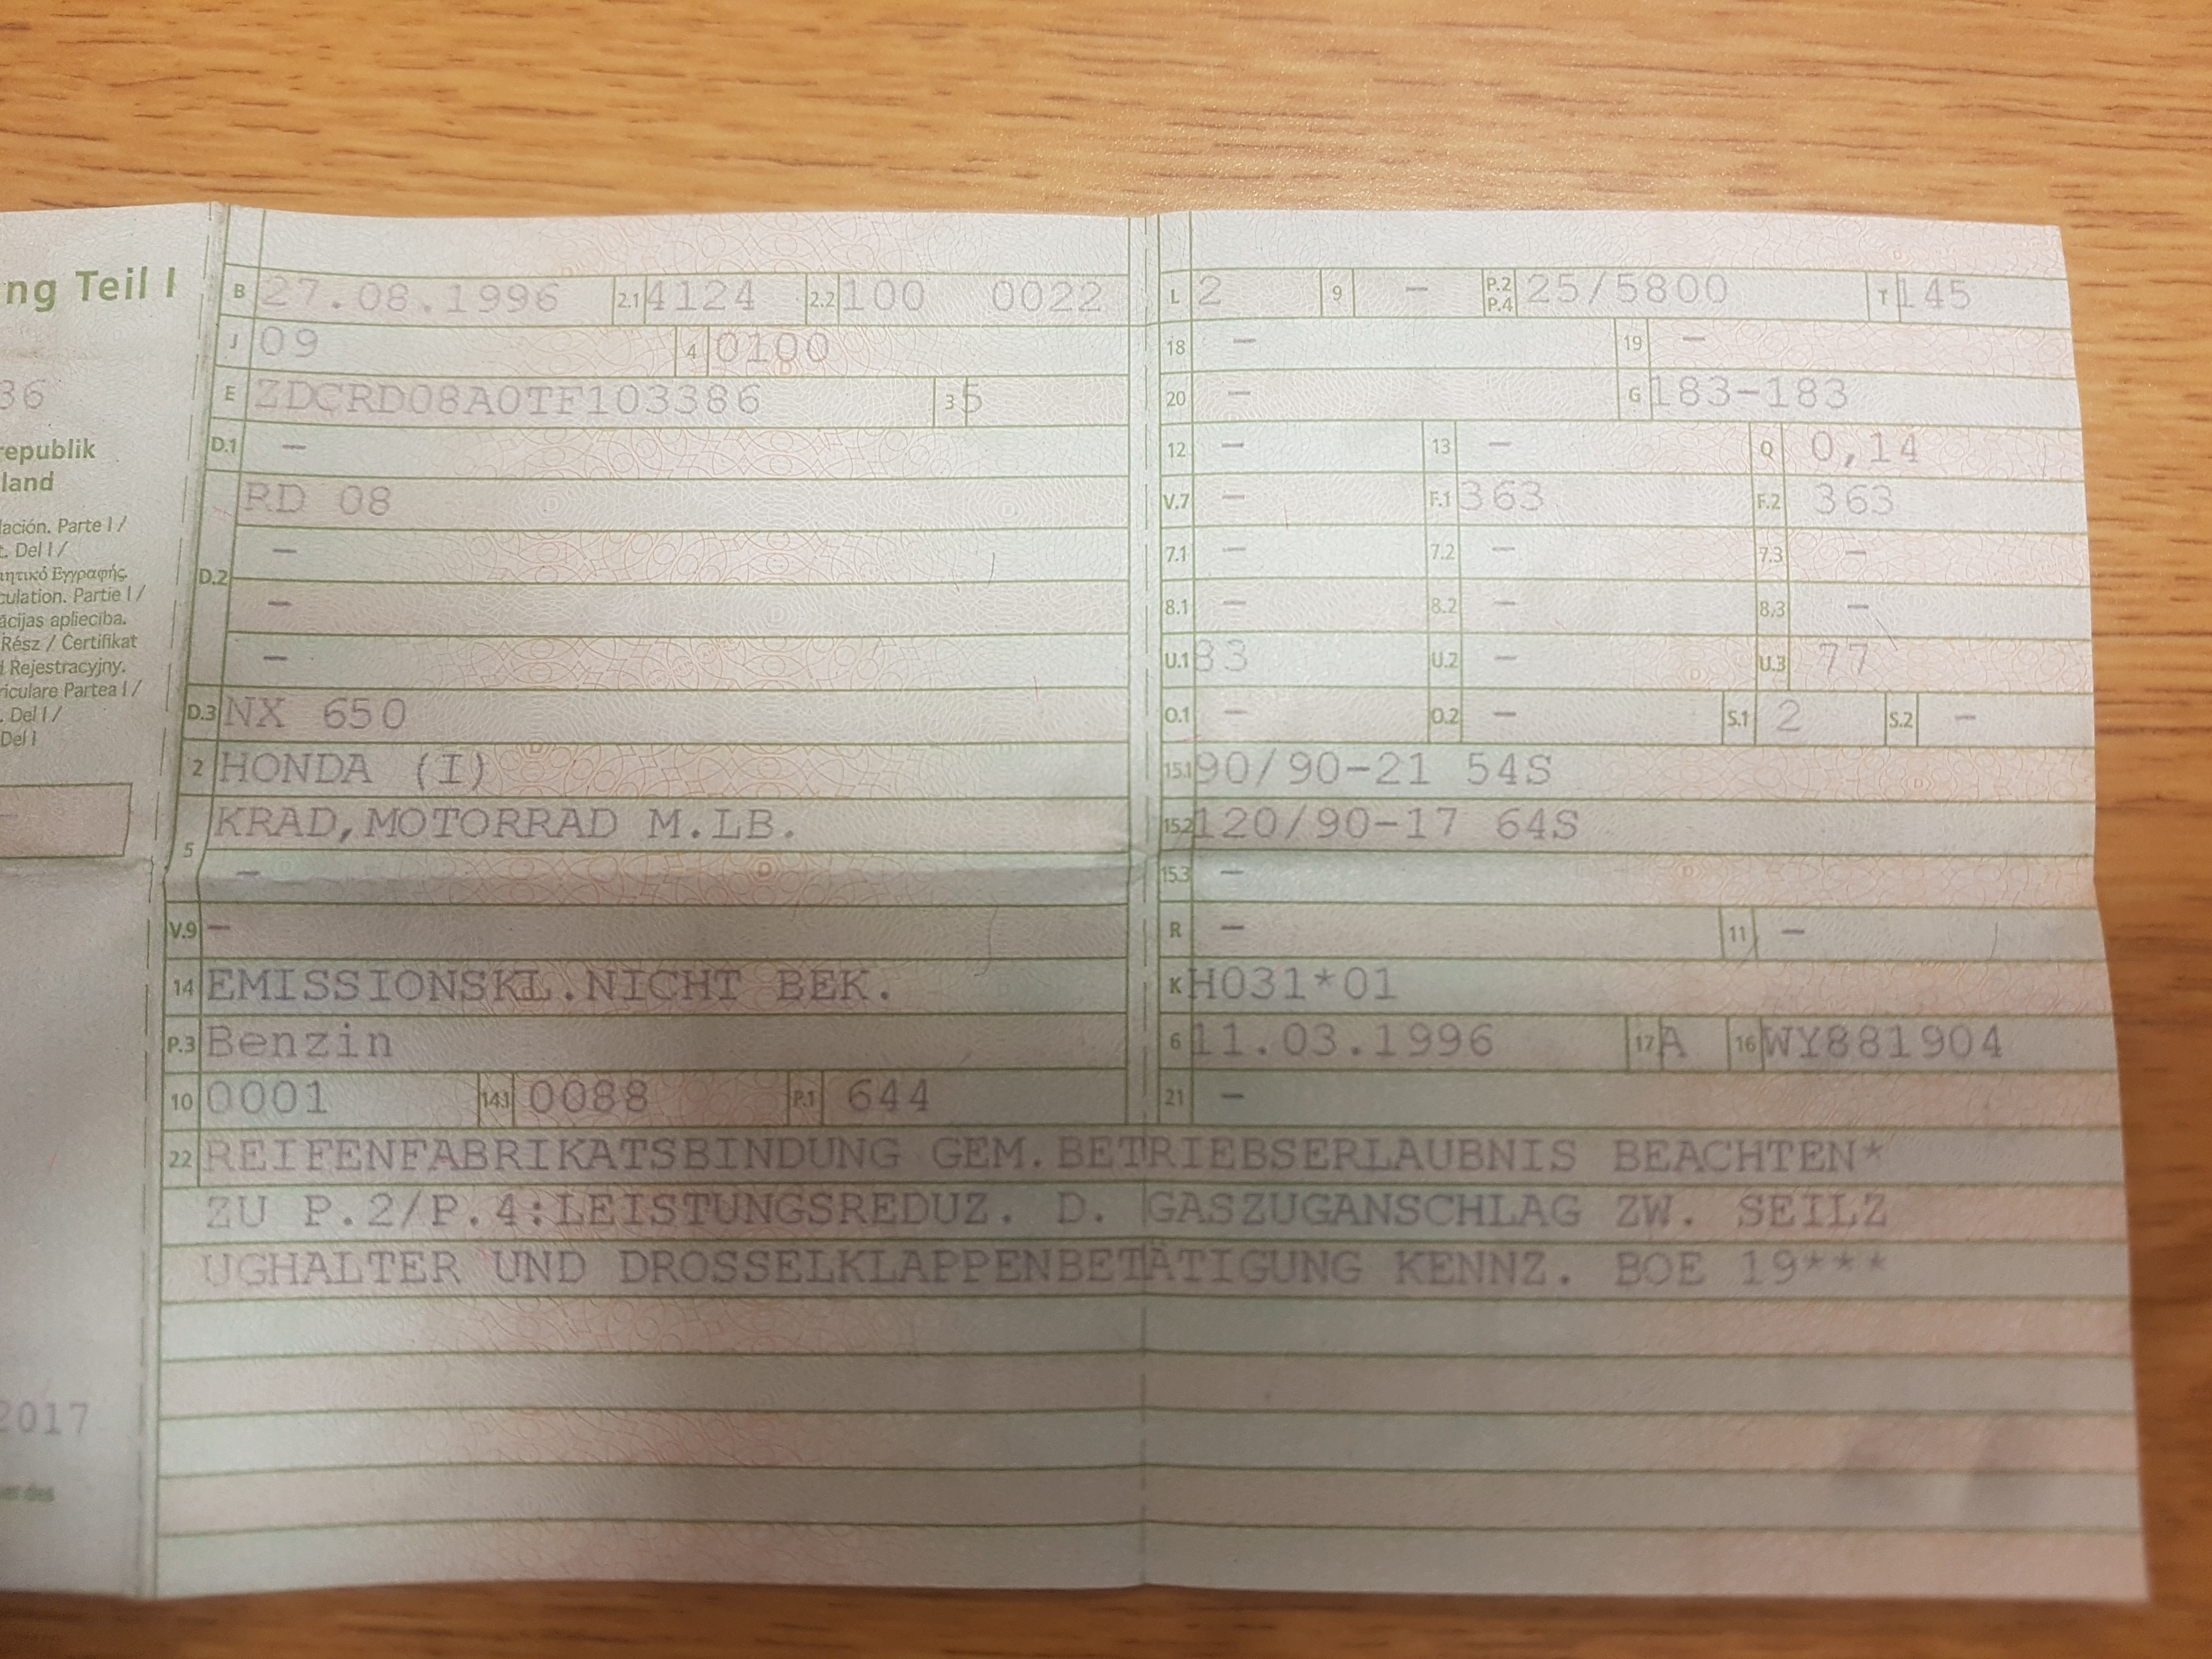 ng Teil I
36
republik
land
lación. Parte I /
t. Del I /
ητικό Εγγραφής.
culation. Partie I /
ācijas apliecība.
Rész / Ċertifikat
d Rejestracyjny.
riculare Partea I /
. Del I /
Del I
2017
B 27.08.1996 2.1 4124 2.2 100 0022
J 09 4 0100
E ZDCRD08A0TF103386 3 5
D.1 –
RD 08
–
D.2
–
–
D.3 NX 650
2 HONDA (I)
KRAD,MOTORRAD M.LB.
5 –
V.9 –
14 EMISSIONSKL.NICHT BEK.
P.3 Benzin
10 0001 14.1 0088 P.1 644
L 2 9 – P.2 P.4 25/5800 T 145
18 – 19 –
20 – G 183-183
12 – 13 – Q 0,14
V.7 – F.1 363 F.2 363
7.1 – 7.2 – 7.3 –
8.1 – 8.2 – 8.3 –
U.1 83 U.2 – U.3 77
O.1 – O.2 – S.1 2 S.2 –
15.1 90/90-21 54S
15.2 120/90-17 64S
15.3 –
R – 11 –
K H031*01
6 11.03.1996 17 A 16 WY881904
21 –
22 REIFENFABRIKATSBINDUNG GEM.BETRIEBSERLAUBNIS BEACHTEN*
ZU P.2/P.4:LEISTUNGSREDUZ. D. GASZUGANSCHLAG ZW. SEILZ
UGHALTER UND DROSSELKLAPPENBETÄTIGUNG KENNZ. BOE 19***